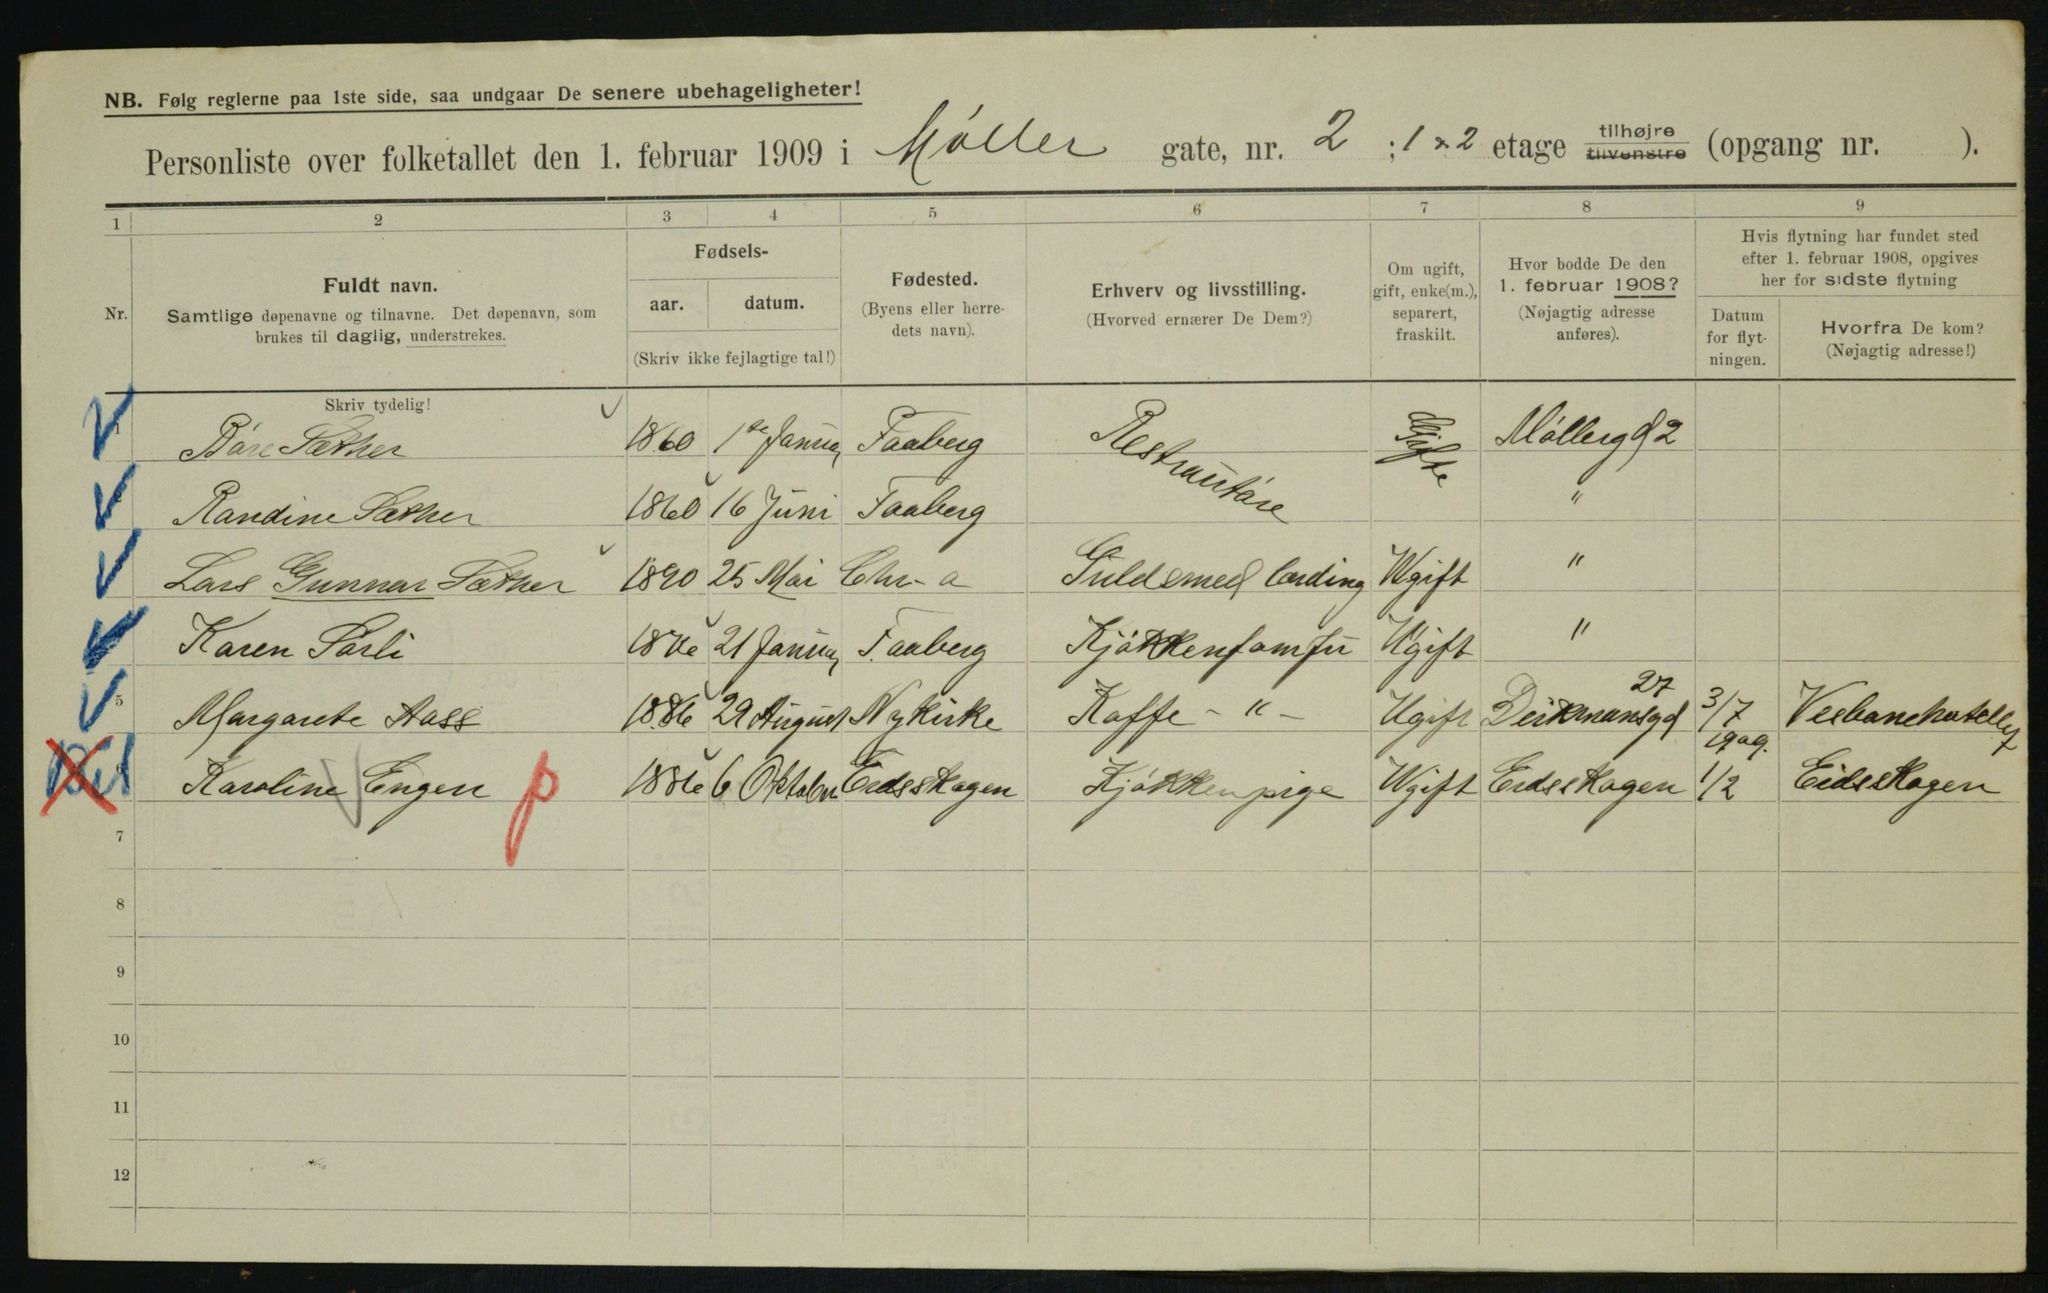 NB. Følg reglerne paa 1ste side, saa undgaar De senere ubehageligheter!
Personliste over folketallet den 1. februar 1909 i Møller gate, nr. 2 ; 1 2 etage tilhøjre tilvenstre (opgang nr. ).
1 2 3 4 5 6 7 8 9
Nr. Fuldt navn. Samtlige døpenavne og tilnavne. Det døpenavn, som brukes til daglig, understrekes.
Fødsels- aar. datum. (Skriv ikke fejlagtige tal!)
Fødested. (Byens eller herredets navn).
Erhverv og livsstilling. (Hvorved ernærer De Dem?)
Om ugift, gift, enke(m.), separert, fraskilt.
Hvor bodde De den 1. februar 1908? (Nøjagtig adresse anføres).
Hvis flytning har fundet sted efter 1. februar 1908, opgives her for sidste flytning
Datum for flytningen. Hvorfra De kom? (Nøjagtig adresse!)
Skriv tydelig!
Sæther 1860 1ste Januar Faaberg Restrautøre Gifte Møllergd 2
Randine Sæther 1860 16 Juni Faaberg "
Lars Gunnar Sæther 1890 25 Mai Chr-a Guldsmed lærding Ugift "
Karen Sørli 21 Januar Faaberg Kjøkkenjomfru Ugift "
5 Margarete Aass 1886 29 August Nykirke Kaffe - " - Ugift 27 3/7
6 Karoline Engen p 1886 6 Oktober Eidsskogen Kjøkkenpige Ugift Eidsskogen 1909. 1/2 Eidsskogen
7
8
9
10
11
12